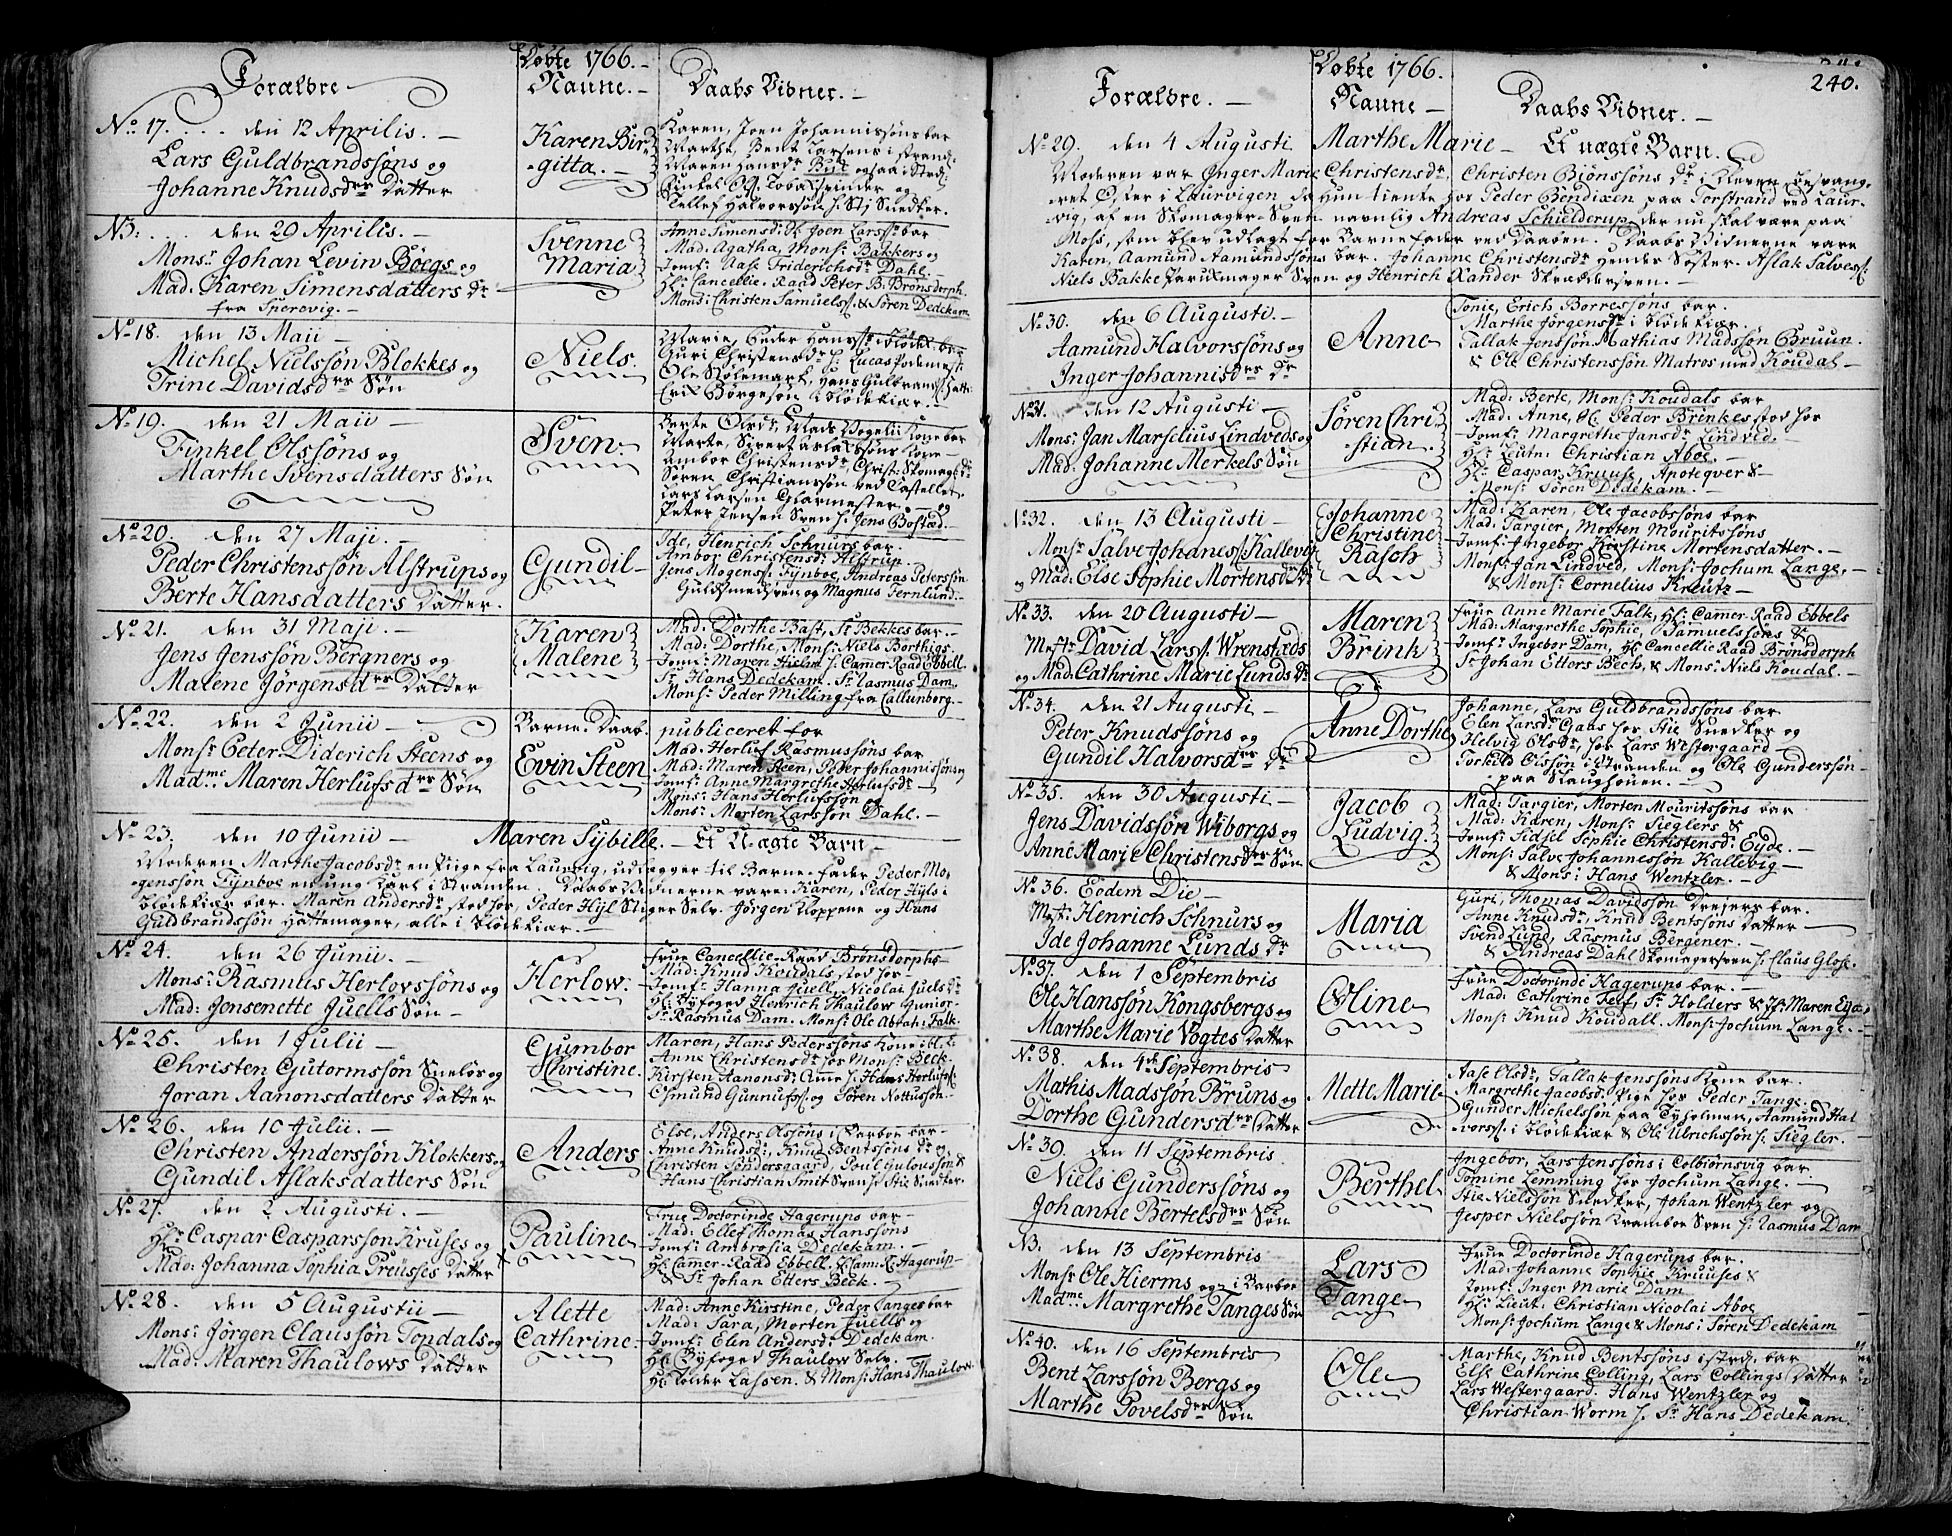 Forældre
Døbte 1766.
Naune.
Daabs Vidner.
No 17. . . . den 12 Aprilis.
Lars Guldbrandssøns og
Johanne Knudsdrs Datter
Karen Bir-
gitta.
Karen, Joen Johannissøns bar
Marthe, Bent Larsens i strand.
Maren Hansdr
Tellef Halvorssøn
N3: . . . den 29 Aprilis.
Monsr Johan Levin Böegs og
Mad. Karen Simensdatters Dr
fra Sperevig.
Svenne
Maria
Anne Simensd: Joen Larss: bar
Mad: Agatha, Mons: Bakkers og
Jomf: Aase Friderichsdr Dahl.
Hr: Cancellie-Raad Peter B. Brönsdorph.
Mons: Christen Samuelss. & Sören Dedekam
No 18. den 13 Maii
Michel Nielssøn Blokkes og
Trine Davidsdrs Søn
Niels.
Guri Christensdr
Ole Sølemark, Hans Gulbrandss.
Erik Børgesøn
No 19. den 21 Maii
Finkel Olssøns og
Marthe Svensdatters Søn
Sven.
Marte, Sivert Aslakssøns Kone
Ambor Christensdr
Sören Christianssøn ved Castellet
Lars Larsen Glarmester. og
Peter Jensen Sven h. Jens Bostæd.
No 20. den 27 Maji.
Peder Christenssøn Alstrups og
Berte Hansdatters Datter.
Gundil
Ide, Henrich Schnurs bar.
Ambor Christensdr: Histrup.
Jens Mogenss: Fynboe, Andreas Peterssøn
Guldsmedsven og Magnus Fernlund.
No 21. den 31 Maji.
Jens Jenssøn Bergners og
Malene Jørgensdrs Datter
Karen
Malene
Mad: Dorthe Bast, Sr Bekkes bar.
Mad: Dorthe, Mons: Niels Borthigs
Jomf: Maren Hielm h. Camer Raad Ebbell
Sr. Hans Dedekam. Sr. Rasmus Dam.
Mons: Peder Milling fra Callunborg.
No 22. den 2 Junii
Monsr Peter Diderich Steens og
Madme Maren Herlufsdrs Søn
Barne-Daab.
Evin Steen
publiceret for
Mad: Herluf Rasmussøns bar
Mad: Maren Steen, Peder Johannissøns
Jomf: Anne Margrethe Herlufsdr
Mons: Hans Herlufssøn
Mons: Morten Larssøn Dahl.
No 23. den 10 Junii Maren Sybille. Et Uægte Barn
Moderen Marthe Jacobsdr en Piige fra Laurvig, udlægger til Barne-fader Peder Mo-
genssøn Fynboe en ung Karl i Stranden. Daabs Vidnerne vare: Karen, Peder Hyls i
Blødekiær bar. Maren Andersdr stod hos, Peder Hyl Stiger Selv. Jörgen Kloppene og Hans
Guldbrandssøn Hattemager, alle i Blødekiær.
No 24. den 26 Junii.
Mons: Rasmus Herlovssøns og
Mad: Jensenette Juells Søn
Herlow.
Frue Cancellie-Raad Brönsdorphs
Mad: Knud Koudals stod hos
Jomf: Hanna Juell, Nicolai Juels Dr
Hr. Byfoged Henrich Thaulow Junior
Sr. Rasmus Dam. Mons: Ole Abrah: Falk.
No 25. den 1 Julii
Christen Gutormssøn Sneløs og
Joran Aanonsdatters Datter
Gumbor
Christine.
Maren, Hans Pederssøns Kone ibid:
Anne Christensdr hos Mons: Beck.
Kirsten Aanonsdr: Amme h. Hans Herlufss.
Osmund Gunnufss. og Sören Nottussøn.
No 26. den 10 Julii.
Christen Anderssøn Klokkers og
Gundil Aslaksdatters Søn
Anders
Else, Anders Olssøns i Barboe bar
Anne Knudsd:, Knud Bentssøns Dr og
Christen Söndergaard, Poul Gulouss. &
Hans Christian Smit Svens h. Stie Snedker.
No 27. den 2 Augusti.
Hr: Caspar Casparssøn Kruses og
Mad: Johanna Sophia Preusses Datter
Pauline
Frue Doctorinde Hagerups bar
Mad: Ellef Thomas Hanssøns
Jomf: Ambrosia Dedekam.
Hr: Camer-Raad Ebbell.
& Sr Johan Etters Beck.
No 28. den 5 Augustii
Mons: Jørgen Claussøn Topdals og
Mad: Maren Thaulows Datter
Alette
Cathrine
Mad: Anne Kirstine, Peder Tanges bar
Mad: Sara, Morten Juells og
Jomf: Elen Andersdr: Dedekam.
Hr: Byfoged Thaulow Selv.
Hr: Tolder Lassen. & Mons: Hans Thaulow.
Forældre.
Døbte 1766.
Naune
Daabs Vidner.
240.
No 29. den 4 Augusti Marthe Marie Et uægte Barn.
Moderen var Inger Marie Christensdr, Christen Biönssøns Dr i Kleven besvang-
ret Efter i Laurvigen da hun tiente hos Peder Bendixen paa Torstrand ved Laur-
vig, af en Skomager-Sven navnlig Andreas Schielderup der nu skal være paa
Moss, som blev udlagt for Barnefader ved Daaben. Daabs Vidnerne vare
Karen, Aamund Aamundssøns bar. Johanne Christensdr hendes Søster. Aslak Salvess:
Niels Bakke Parukmager Sven og Henrich Xander Skræddersven.
No 30. den 6 Augusti.
Aamund Halvorssøns og
Inger Johannisdrs Dr
Anne
Tonie, Erich Borressøns bar.
Marthe Jørgensdr i Blødekiær.
Tallak Jenssøn Mathias Madssøn Bruun
& Ole Christenssøn Matros med Koudal
No 31. den 12 Augusti
Mons: Jan Marselius Lindveds og
Mad: Johanne Merkels Søn
Søren Chri-
stian.
Mad: Berte, Mons: Koudals bar
Mad: Anne, Hr. Peder Brinkes stod hos
Jomf: Margrethe Jansdr Lindved.
Hr: Lieutn: Christian Aboe.
Hr: Caspar Kruuse Apoteqver &
Mons: Sören Dedekam.
No 32. den 13 Augusti
Monsr Salve Johaness. Kallevig
og Mad: Else Sophie Mortensdrs Dr
Johanne
Christine
Rasch
Mad: Karen, Ole Jacobssøns bar
Mad: Targier, Morten Mouritssøns
Jomf: Ingebor Kirstine Mortensdatter.
Mons: Jan Lindved, Mons: Jochum Lange,
& Mons: Cornelius Kreutz
No 33. den 20 Augusti
Mestr David Larss. Wrensteds
og Mad: Cathrine Marie Lunds Dr
Maren
Brink
Frue Anne Marie Falk, Hr: Camer Raad Ebbels
Mad: Margrethe Sophie, Samuelssøns &
Jomf: Ingebor Dam, Hr Cancellie Raad Brönsdorph
Sr Johan Etters Bech, & Mons: Niels Koudal.
No 34. den 21 Augusti
Peter Knudssøns og
Gundil Halvorsdrs Dr
Anne Dorthe
Johanne, Lars Guldbrandssøns bar
Elen Larsdr: Gaas hos Stie Snedker og
Helvig Olsdr, hos Lars Westergaard
Torkild Olssøn i Stranden og Ole Gunderssøn
paa Klaughouen.
No 35. den 30 Augusti
Jens Davidssøn Wiborgs og
Anne Marie Christensdrs Søn
Jacob
Ludvig.
Mad: Targier, Morten Mouritssøns bar
Mad: Karen, Mons: Sieglers &
Jomf: Sidsel Sophie Christensd: Eyde.
Mons: Salve Johannessøn Kallevig
& Mons: Hans Wentzler.
No 36. Eodem Die
Mestr: Henrich Schnurs og
Ide Johanne Lunds Dr
Maria
Guri, Thomas Davidssøn Drejers bar.
Anne Knudsdr, Knud Bentssøns Datter
Svend Lund, Rasmus Bergener.
& Andreas Dahl Skomagersven h. Claus Glose.
No 37. den 1 Septembris
Ole Hanssøn Kongsbergs og
Marthe Marie Vogtes Datter
Oline
Frue Doctorinde Hagerups bar.
Mad: Cathrine Leif, Sr. Holders & Jf: Maren Eyde
Mons: Knud Koudall. Mons: Jochum Lange.
No 38. den 4de Septembris
Mathis Madssøn Bruns og
Dorthe Gundersdrs Datter
Mette Marie
Aase Olsdr, Tallak Jenssøns Kone bar.
Margrethe Jacobsd: Pige hos Peder Tange.
Gunder Michelssøn paa Tyholmen, Aamund Hal-
vorss. i Blødekiær & Ole Ulrichssøn h. Siegler.
No 39. den 11 Septembris
Niels Gunderssøns og
Johanne Bertelsdrs Søn
Berthel
Ingebor, Lars Jenssøns i Colbiørnsvig bar
Tomine Lemming hos Jochum Lange.
Stie Nielssøn Snedker, Johan Wentzler og
Jesper Nielssøn Krambor Sven h. Rasmus Dam
N3. den 13 Septembris
Monsr Ole Hierms og i Barboe
Madme Margrethe Tanges Søn
Lars
Tange
Frue Doctorinde Hagerups bar.
Mad: Johanne Sophie Kruuses &
Jomf: Inger Marie Dam
Hr: Lieut: Christian Nicolai Aboe
Mons: Jochum Lange & Mons: Sören Dedekam
No 40. den 16 Septembris
Bent Larssøn Bergs og
Marthe Povelsdrs Søn
Ole
Marthe, Knud Bentssøns i strd. bar
Else Cathrine Colling, Lars Collings Datter
Lars Westergaard. Hans Wentzler og
Christian Worm h. Sr. Hans Dedekam.